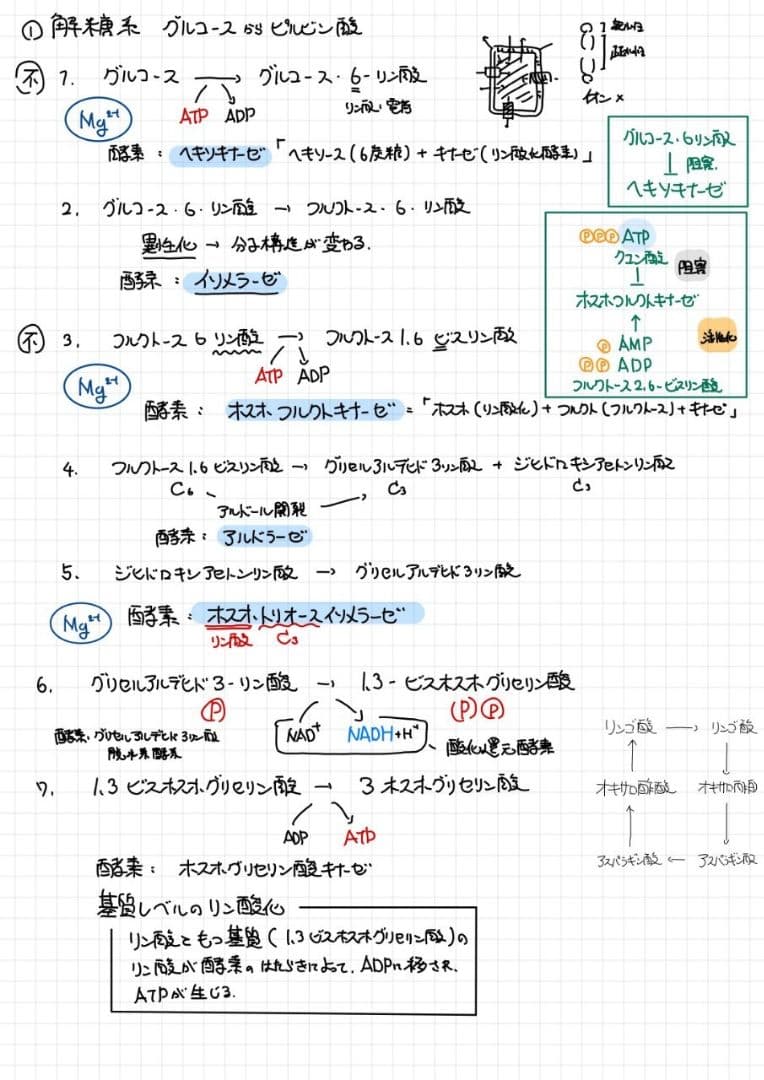 ① 解糖系 グルコースからピルビン酸
不 1. グルコース → グルコース・6-リン酸
リン酸:電荷
Mg²⁺
ATP ADP
酵素:ヘキソキナーゼ「ヘキソース(6炭糖)+キナーゼ(リン酸化酵素)」
イオン×
グルコース・6リン酸
阻害
ヘキソキナーゼ
2. グルコース・6・リン酸 → フルクトース・6・リン酸
異性化 → 分子構造が変わる.
酵素:イソメラーゼ
ⓅⓅⓅATP
クエン酸
阻害
ホスホフルクトキナーゼ
活性化
Ⓟ AMP
ⓅⓅ ADP
フルクトース2,6-ビスリン酸
不 3. フルクトース6リン酸 → フルクトース1.6ビスリン酸
Mg²⁺
ATP ADP
酵素:ホスホフルクトキナーゼ=「ホスホ(リン酸化)+フルクト(フルクトース)+キナーゼ」
4. フルクトース1.6ビスリン酸 → グリセルアルデヒド3リン酸 + ジヒドロキシアセトンリン酸
C₆ C₃ C₃
アルドール開裂
酵素:アルドラーゼ
5. ジヒドロキシアセトンリン酸 → グリセルアルデヒド3リン酸
Mg²⁺
酵素:ホスホ・トリオースイソメラーゼ
リン酸 C₃
6. グリセルアルデヒド3-リン酸 → 1.3-ビスホスホグリセリン酸
Ⓟ (P)Ⓟ
NAD⁺ NADH+H⁺
酸化還元酵素
酵素:グリセルアルデヒド3リン酸
脱水素酵素
7. 1.3ビスホスホグリセリン酸 → 3ホスホグリセリン酸
ADP ATP
酵素:ホスホグリセリン酸キナーゼ
基質レベルのリン酸化
リン酸をもつ基質(1.3ビスホスホグリセリン酸)の
リン酸が酵素のはたらきによって、ADPに移され、
ATPが生じる.
リンゴ酸 → リンゴ酸
オキサロ酢酸 オキサロ酢酸
アスパラギン酸 ← アスパラギン酸